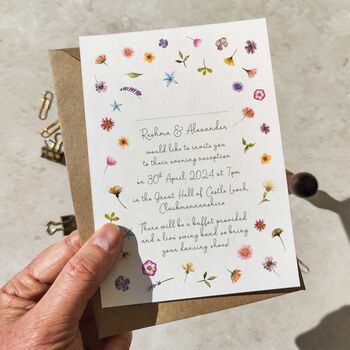 Reshma & Alexander
would like to invite you
to their evening reception
on 30th April 2024 at 7pm
in the Great Hall of Castle Leoch,
Clackmannanshire
There will be a buffet provided
and a live swing band so bring
your dancing shoes!